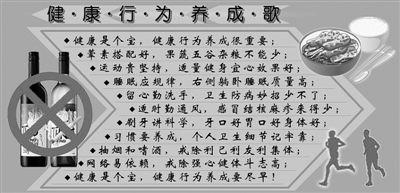 健·康·行·为·养·成·歌
◆健康是个宝，健康行为养成很重要；
◆荤素搭配好，果蔬五谷杂粮不能少；
◆运动贵坚持，适量健身宜心效果好；
◆睡眠应规律，右侧躺卧睡眠质量高；
◆留心勤洗手，卫生防病妙招少不了；
◆适时勤通风，感冒结核麻疹来得少；
◆刷牙讲科学，牙口好胃口好身体好；
◆习惯要养成，个人卫生细节记牢靠；
◆抽烟和嗜酒，戒除利己利友利集体；
◆网络易依赖，戒除强心健体斗志高；
◆健康是个宝，健康行为养成要尽早！